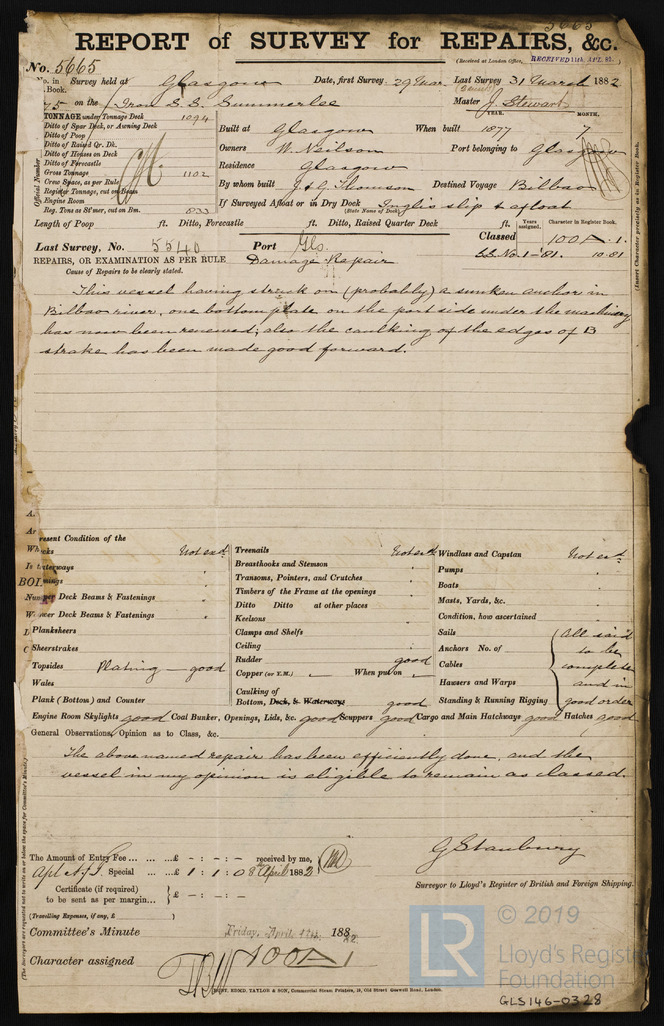 5665
REPORT of SURVEY for REPAIRS, &c.
(Received at London Office, RECEIVED 11TH APL 82.)
No. 5665
No. in Survey held at Glasgow Date, first Survey 29 Mar. Last Survey 31 March 1882
Book.
75 on the Iron S.S. Summerlee Master J. Stewart
TONNAGE under Tonnage Deck 1094
Ditto of Spar Deck, or Awning Deck
Ditto of Poop
Ditto of Raised Qr. Dk.
Ditto of Houses on Deck
Ditto of Forecastle
Gross Tonnage 1102
Crew Space, as per Rule
Register Tonnage, cut on Beam
Engine Room
Reg. Tons as St'mer, cut on Bm. 833
Official Number
YEAR. MONTH.
Built at Glasgow When built 1877 7
Owners W. Neilson Port belonging to Glasgow
Residence Glasgow
By whom built J. & G. Thomson Destined Voyage Bilbao
If Surveyed Afloat or in Dry Dock Inglis slip & afloat
(State Name of Dock.)
Length of Poop ft. Ditto, Forecastle ft. Ditto, Raised Quarter Deck ft.
Years assigned. Character in Register Book.
Last Survey, No. 5540 Port Glo. Classed 100 A. 1.
S.S. No. 1-'81. 10.81
REPAIRS, OR EXAMINATION AS PER RULE Damage Repair
Cause of Repairs to be clearly stated.
(Insert Character precisely as in Register Book.)
This vessel having struck on (probably) a sunken anchor in
Bilbao river, one bottom plate on the port side under the machinery
has now been renewed; also the caulking of the edges of B
strake has been made good forward.
Present Condition of the
Not exd.
Waterways "
BOI
Deck Beams & Fastenings "
Lower Deck Beams & Fastenings "
Planksheers
Sheerstrakes
Topsides Plating - good
Wales
Plank (Bottom) and Counter
Treenails Not exd.
Breasthooks and Stemson
Transoms, Pointers, and Crutches
Timbers of the Frame at the openings
Ditto Ditto at other places
Keelsons
Clamps and Shelfs
Ceiling
Rudder good
Copper (or Y.M.) When put on
Caulking of
Bottom, Deck, & Waterways good
Windlass and Capstan Not exd.
Pumps
Boats
Masts, Yards, &c.
Condition, how ascertained
Sails
Anchors No. of
Cables
Hawsers and Warps
Standing & Running Rigging
All said
to be
complete
and in
good order
Engine Room Skylights good Coal Bunker, Openings, Lids, &c. good Scuppers good Cargo and Main Hatchways good Hatches good
General Observations, Opinion as to Class, &c.
The above named repair has been efficiently done, and the
vessel in my opinion is eligible to remain as classed.
The Amount of Entry Fee ... £ - : - : - received by me,
Special ... £ 1 : 1 : 0 8 April 1882
Certificate (if required)
to be sent as per margin... £ - : - : -
(Travelling Expenses, if any, £ )
G Stanbury
Surveyor to Lloyd's Register of British and Foreign Shipping.
Committee's Minute Friday, April 14th, 1882
Character assigned 100A1
(The Surveyors are requested not to write on or below the space for Committee's Minute.)
EDMD. TAYLOR & SON, Commercial Steam Printers, 19, Old Street Goswell Road, London.
LR
© 2019
Lloyd's Register
Foundation
GLS146-0328